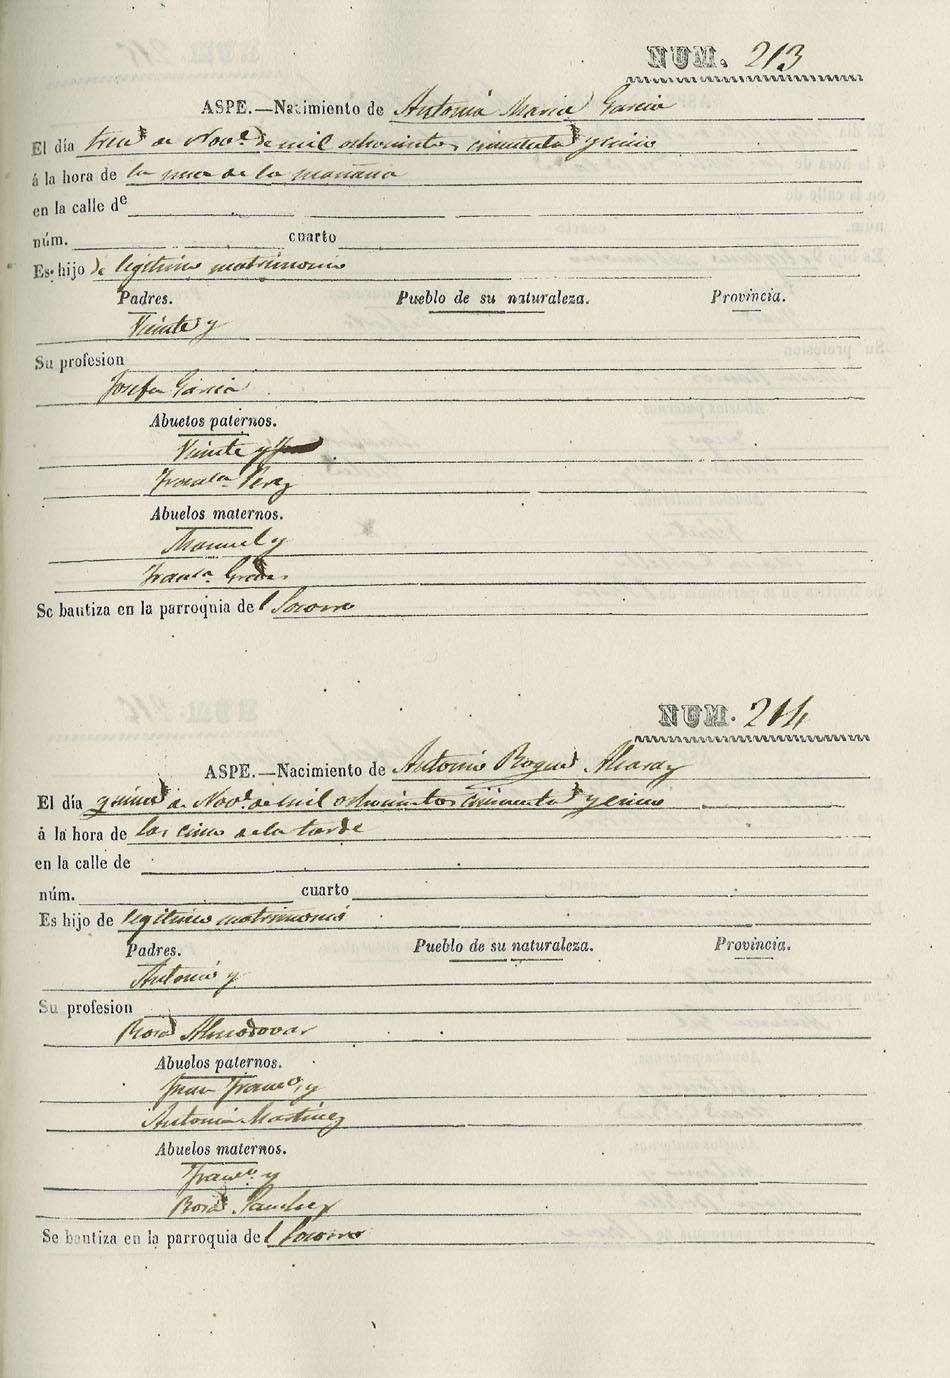 NUM. 213
ASPE.—Nacimiento de Antonia Maria Garcia
El día trece de Nov.e de mil ochocientos cincuenta y cinco
á la hora de la una de la mañana
en la calle de
núm. cuarto
Es hijo de legitimo matrimonio
Padres. Pueblo de su naturaleza. Provincia.
Vicente y
Su profesion
Josefa Garcia
Abuelos paternos.
Vicente y
Fran.ca Perez
Abuelos maternos.
Manuel y
Fran.ca
Se bautiza en la parroquia del Socorro
NUM. 214
ASPE.—Nacimiento de Antonio Roque Alcaraz
El día quince de Nov.e de mil ochocientos cincuenta y cinco
á la hora de las cinco de la tarde
en la calle de
núm. cuarto
Es hijo de legitimo matrimonio
Padres. Pueblo de su naturaleza. Provincia.
Antonio y
Su profesion
Rosa Almodovar
Abuelos paternos.
Juan Fran.co y
Antonia Martinez
Abuelos maternos.
Fran.co y
Rosa Sanchez
Se bautiza en la parroquia del Socorro